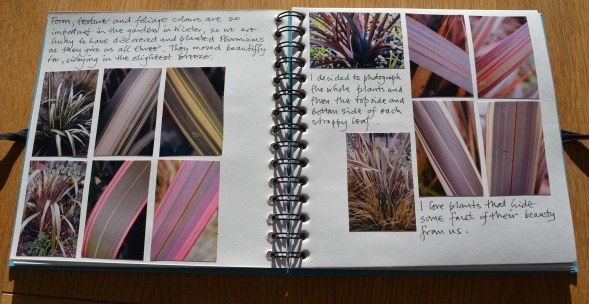 Form, texture and foliage colours are so
important in the garden in Winter, so we are
lucky to have discovered and planted Phormiums
as they give us all three. They move beautifully
too, swaying in the slightest breeze.
I decided to photograph
the whole plants and
then the top side and
bottom side of each
strappy leaf.
I love plants that hide
some facet of their beauty
from us.